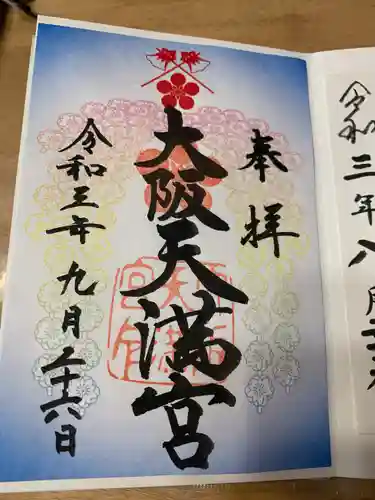 奉拝
大阪天満宮
令和三年九月二十六日
令和三年八月